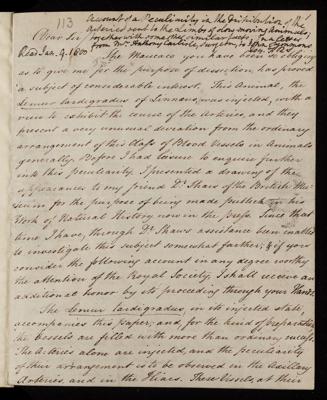 113
Account of a Peculiarity in the Distribution of the
Arteries sent to the Limbs of slow moving Animals;
together with some other similar facts. In a letter
from Mr Anthony Carlisle, Surgeon, to John Symmons,
Esq. F.R.S.
Dear Sir
Read Jan. 9. 1800
The Maucaco you have been so obliging
as to give me for the purpose of dissection, has proved
a subject of considerable interest. This Animal, the
Lemur tardigradus of Linnæus, was injected, with a
view to exhibit the course of the Arteries, and they
present a very unusual deviation from the ordinary
arrangement of this Class of Blood Vessels in Animals
generally. Before I had leisure to enquire further
into this peculiarity, I presented a drawing of the
appearances to my friend Dr Shaw of the British Mu-
seum for the purpose of being made publick in his
Work of Natural History now in the press. Since that
time I have, through Dr Shaws assistance been enabled
to investigate this subject somewhat farther; & if you
consider the following account in any degree worthy
the attention of the Royal Society, I shall receive an
additional honor by its proceeding through your Hands.
The Lemur tardigradus, in its injected state,
accompanies this paper; and, for the kind of preparation
the Vessels are filled with more than ordinary success.
The Arteries alone are injected, and the peculiarity
of their arrangement is to be observed in the Axillary
Arteries, and in the Iliacs. These Vessels, at their